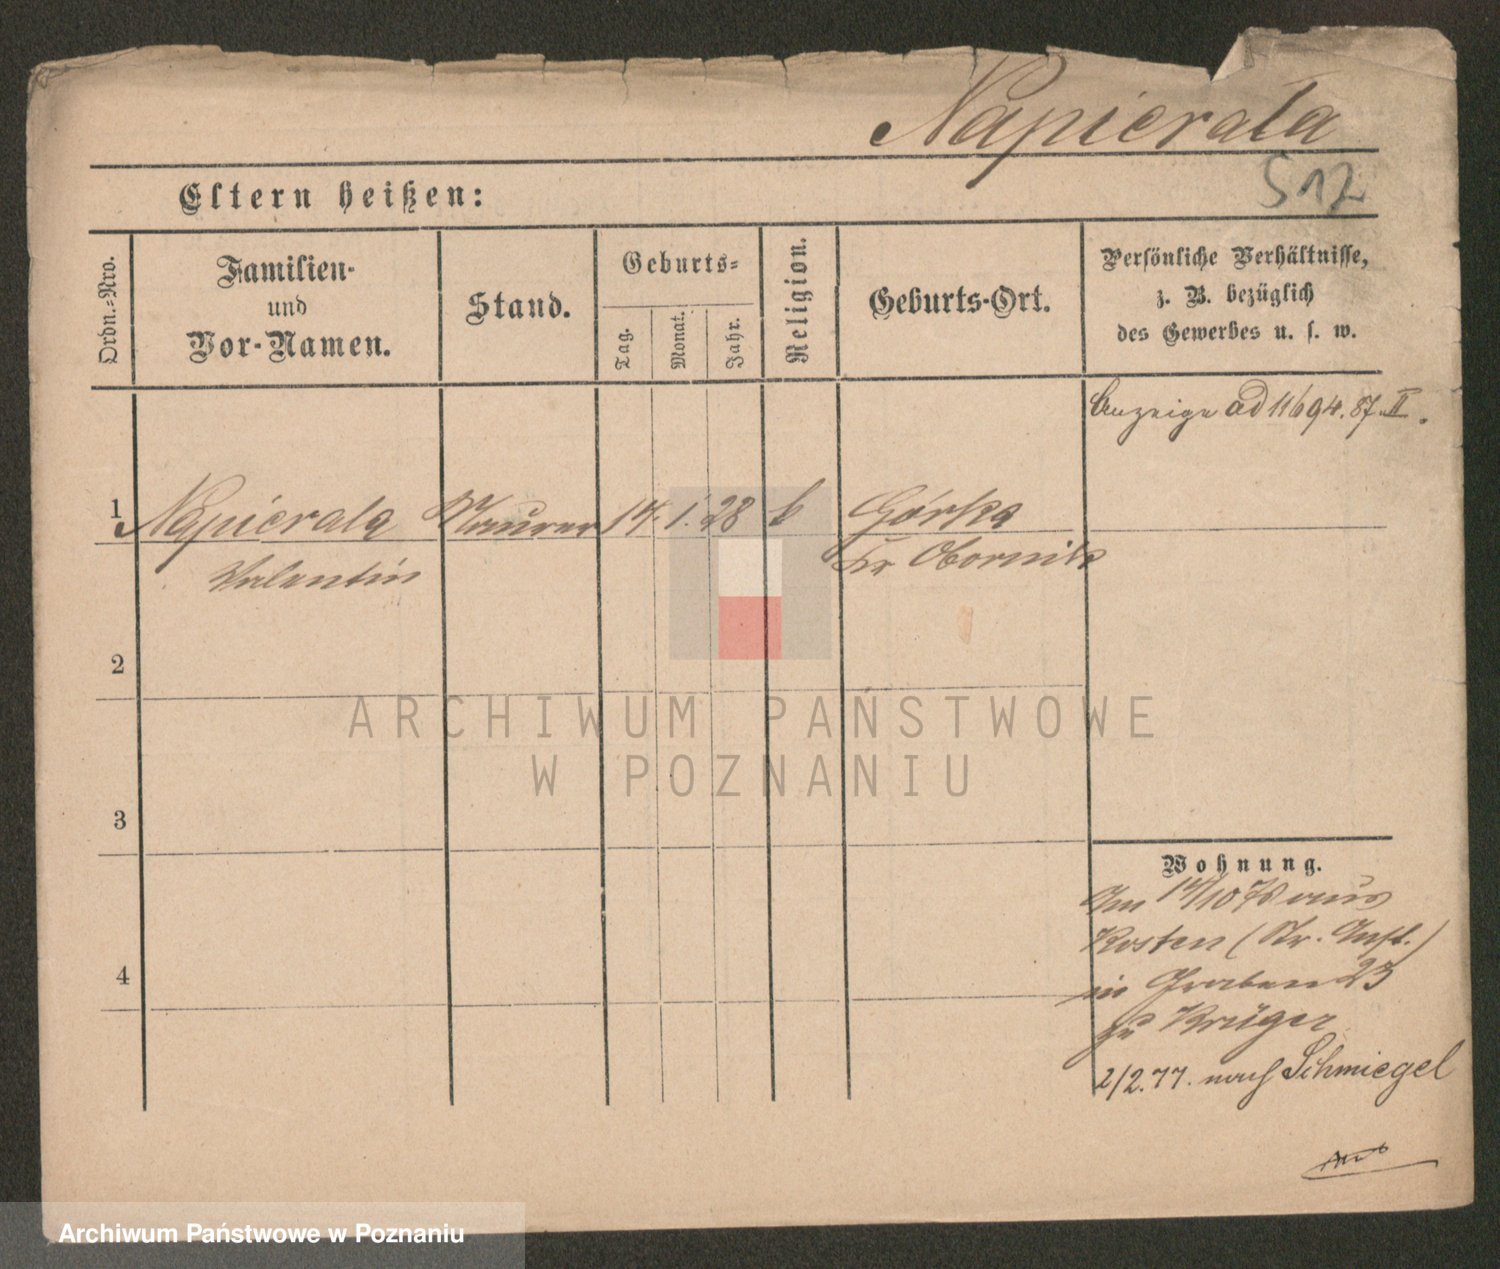 Napierała
517
Eltern heißen:
Ordn.-Nro.
Familien-
und
Vor-Namen.
Stand.
Geburts-
Tag.
Monat.
Jahr.
Religion.
Geburts-Ort.
Persönliche Verhältnisse,
z. B. bezüglich
des Gewerbes u. s. w.
Anzeige ad 11694.87.II.
1
Napierala Maurer 14. 1. 28 k Górka
Valentin Kr Obornik
2
3
4
Wohnung.
Am 14/10 76 aus
Kosten (Kr. Anst.)
in Graben 23
zu Krüger
2/2.77. nach Schmiegel
ARCHIWUM PAŃSTWOWE
W POZNANIU
Archiwum Państwowe w Poznaniu